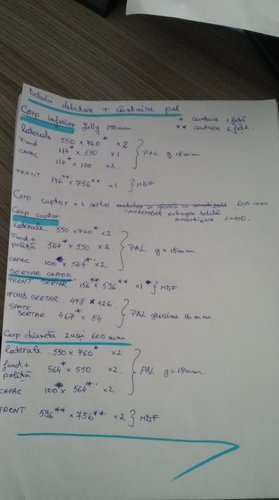 Detalii debitare + căntuire pal.
Corp inferior Jolly 150 mm
* cantuire 1 fată
** cantuire 2 fete
laterale 550 x 760* x 2
FUND 114* x 550 x1
CAPAC 114* x 100 x2
PAL g 18mm
FRONT 146** x 756** x 1 } MDF
Corp cuptor + 1 sertar 600 mm
TANDEMBOX extragere totală
amortizare L=450.
Corp cuptor
laterale 550 x 760* x2
Fund +
poliță 564* x 550 x2
CAPAC 100* x 564* x2
PAL g = 18mm
SERTAR CUPTOR
FRONT SERTAR 156** x 596** x1 } MDF
FUND SERTAR 498 x 426
SPATE
SERTAR 467* x 84
PAL grosime 16 mm.
Corp chiuvetă 2 uși 600 mm
laterale 550 x 760* x2
fund +
poliță 564* x 550 x2
CAPAC 100* x 564* x2
PAL g = 18mm
FRONT 596** x 756** x 2 } MDF